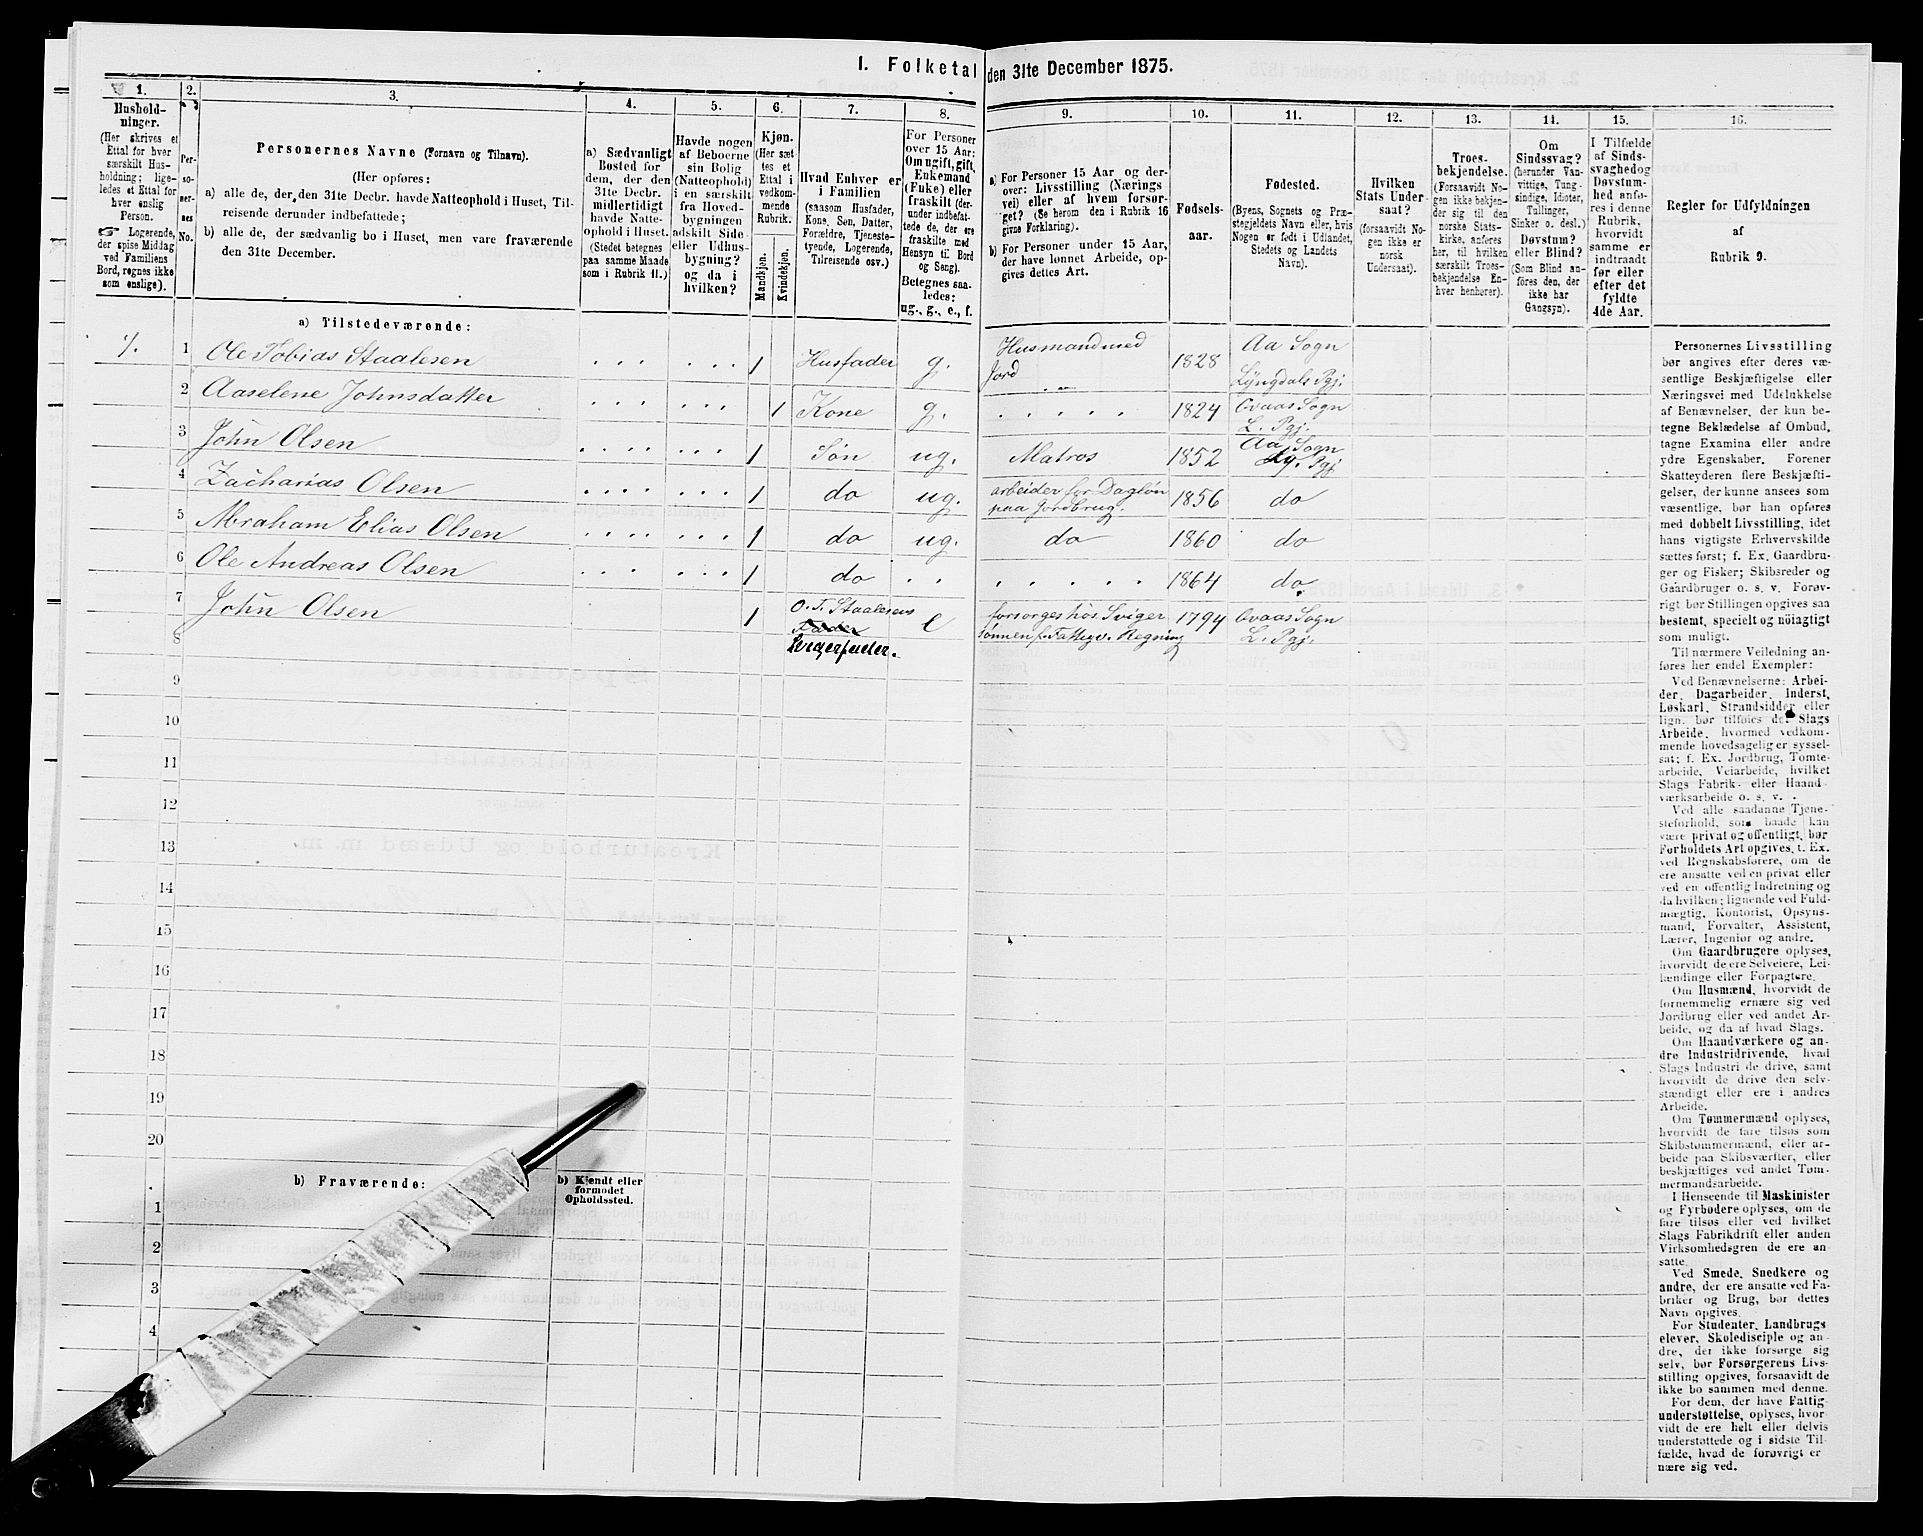 1. Folketal den 31te December 1875.
1.
Hushold-
ninger.
(Her skrives et
Ettal for hver
særskilt Hus-
holdning; lige-
ledes et Ettal for
hver enslig
Person.
☞ Logerende,
der spise Middag
ved Familiens
Bord, regnes ikke
som enslige).
2.
Per-
so-
ner-
nes
No.
3.
Personernes Navne (Fornavn og Tilnavn).
(Her opføres:
a) alle de, der, den 31te Decbr. havde Natteophold i Huset, Til-
reisende derunder indbefattede;
b) alle de, der sædvanlig bo i Huset, men vare fraværende
den 31te December.
4.
a) Sædvanligt
Bosted for
dem, der den
31te Decbr.
midlertidigt
havde Natte-
ophold i Huset.
(Stedet betegnes
paa samme Maade
som i Rubrik 11.)
5.
Havde nogen
af Beboerne
sin Bolig
(Natteophold)
i en særskilt
fra Hoved-
bygningen
adskilt Side-
eller Udhus-
bygning?
og da i
hvilken?
6.
Kjøn.
(Her sæt-
tes et
Ettal i
vedkom-
mende
Rubrik.
Mandkjøn.
Kvindekjøn.
7.
Hvad Enhver er
i Familien
(saasom Husfader,
Kone, Søn, Datter,
Forældre, Tjeneste-
tyende, Logerende,
Tilreisende osv.)
8.
For Personer
over 15 Aar:
Om ugift, gift,
Enkemand
(Enke) eller
fraskilt (der-
under indbefat-
tede de, der ere
fraskilte med
Hensyn til Bord
og Seng).
Betegnes saa-
ledes:
ug., g., e., f.
9.
a) For Personer 15 Aar og der-
over: Livsstilling (Nærings
vei) eller af hvem forsør-
get? (Se herom den i Rubrik 16
givne Forklaring).
b) For Personer under 15 Aar,
der have lønnet Arbeide, op-
gives dettes Art.
10.
Fødsels-
aar.
11.
Fødested.
(Byens, Sognets og Præ-
stegjeldets Navn eller, hvis
Nogen er født i Udlandet,
Stedets og Landets
Navn).
12.
Hvilken
Stats Under-
saat?
(forsaavidt No-
gen ikke er
norsk
Undersaat).
13.
Troes-
bekjendelse.
(Forsaavidt No-
gen ikke bekjen-
der sig til den
norske Stats-
kirke, anføres
her, til hvilken
særskilt Troes-
bekjendelse En-
hver henhører).
14.
Om
Sindssvag?
(herunder Van-
vittige, Tung-
sindige, Idioter,
Tullinger,
Sinker o. desl.)
Døvstum?
eller Blind?
(Som Blind an-
føres den, der
ikke har
Gangsyn).
15.
I Tilfælde
af Sinds-
svaghed og
Døvstum-
hed anfø-
res i denne
Rubrik,
hvorvidt
samme er
indtraadt
før eller
efter det
fyldte
4de Aar.
16.
Regler for Udfyldningen
af
Rubrik 9.
a) Tilstedeværende:
1. 1 Ole Tobias Staalesen 1 Husfader g. Husmand med Jord 1828 Aa Sogn Lyngdals Pgj.
2 Aaselene Johnsdatter 1 Kone g. 1824 Qvaas Sogn L. Pgj.
3 John Olsen 1 Søn ug. Matros 1852 Aa Sogn Ly. Pgj.
4 Zacharias Olsen 1 do ug. arbeider for Dagløn paa Jordbrug. 1856 do
5 Abraham Elias Olsen 1 do ug. do 1860 do
6 Ole Andreas Olsen 1 do 1864 do
7 John Olsen 1 O. T. Staalesens Fader e forsorges hos Sviger 1794 Qvaas Sogn
8 Svigerfader. sønnen f. Fattigv. Regning L. Pgj.
9
10
11
12
13
14
15
16
17
18
19
20
b) Fraværende:
b) Kjendt eller
formodet
Opholdssted.
1
2
3
4
Personernes Livsstilling
bør angives efter deres væ-
sentlige Beskjæftigelse eller
Næringsvei med Udelukkelse
af Benævnelser, der kun be-
tegne Beklædelse af Ombud,
tagne Examina eller andre
ydre Egenskaber. Forener
Skatteyderen flere Beskjæfti-
gelser, der kunne ansees som
væsentlige, bør han opføres
med dobbelt Livsstilling, idet
hans vigtigste Erhvervskilde
sættes først; f. Ex. Gaardbru-
ger og Fisker; Skibsreder og
Gaardbruger o. s. v. Forøv-
rigt bør Stillingen opgives saa
bestemt, specielt og nöiagtigt
som muligt.
Til nærmere Veiledning an-
føres her endel Exempler:
Ved Benævnelserne: Arbei-
der, Dagarbeider, Inderst,
Løskarl, Strandsidder eller
lign. bør tilføies det Slags
Arbeide, hvormed vedkom-
mende hovedsagelig er syssel-
sat; f. Ex. Jordbrug, Tomte-
arbeide, Veiarbeide, hvilket
Slags Fabrik- eller Haand-
værksarbeide o. s. v.
Ved alle saadanne Tjene-
steforhold, som baade kan
være privat og offentligt, bør
Forholdets Art opgives, t. Ex.
ved Regnskabsførere, om de
ere ansatte ved en privat eller
ved en offentlig Indretning og
da hvilken; lignende ved Fuld-
mægtig, Kontorist, Opsyns-
mand, Forvalter, Assistent,
Lærer, Ingeniør og andre.
Om Gaardbrugere oplyses,
hvorvidt de ere Selveiere, Lei-
lændinge eller Forpagtere.
Om Husmænd, hvorvidt de
fornemmelig ernære sig ved
Jordbrug eller ved andet Ar-
beide, og da af hvad Slags.
Om Haandværkere og an-
dre Industridrivende, hvad
Slags Industri de drive, samt
hvorvidt de drive den selv-
stændigt eller ere i andres
Arbeide.
Om Tømmermænd oplyses,
hvorvidt de fare tilsøs som
Skibstømmermænd, eller ar-
beide paa Skibsværfter, eller
beskjæftiges ved andet Tøm-
mermandsarbeide.
I Henseende til Maskinister
og Fyrbødere oplyses, om de
fare tilsøs eller ved hvilket
Slags Fabrikdrift eller anden
Virksomhedsgren de ere an-
satte.
Ved Smede, Snedkere og
andre, der ere ansatte ved Fa-
briker og Brug, bør dettes
Navn opgives.
For Studenter, Landbrugs
elever, Skoledisciple og an-
dre, der ikke forsørge sig
selv, bør Forsørgerens Livs-
stilling opgives, forsaavidt de
ikke bo sammen med denne.
For dem, der have Fattig-
understøttelse, oplyses, hvor-
vidt de ere helt eller delvis
understøttede og i sidste Til-
fælde, hvad de forøvrigt er-
nære sig ved.